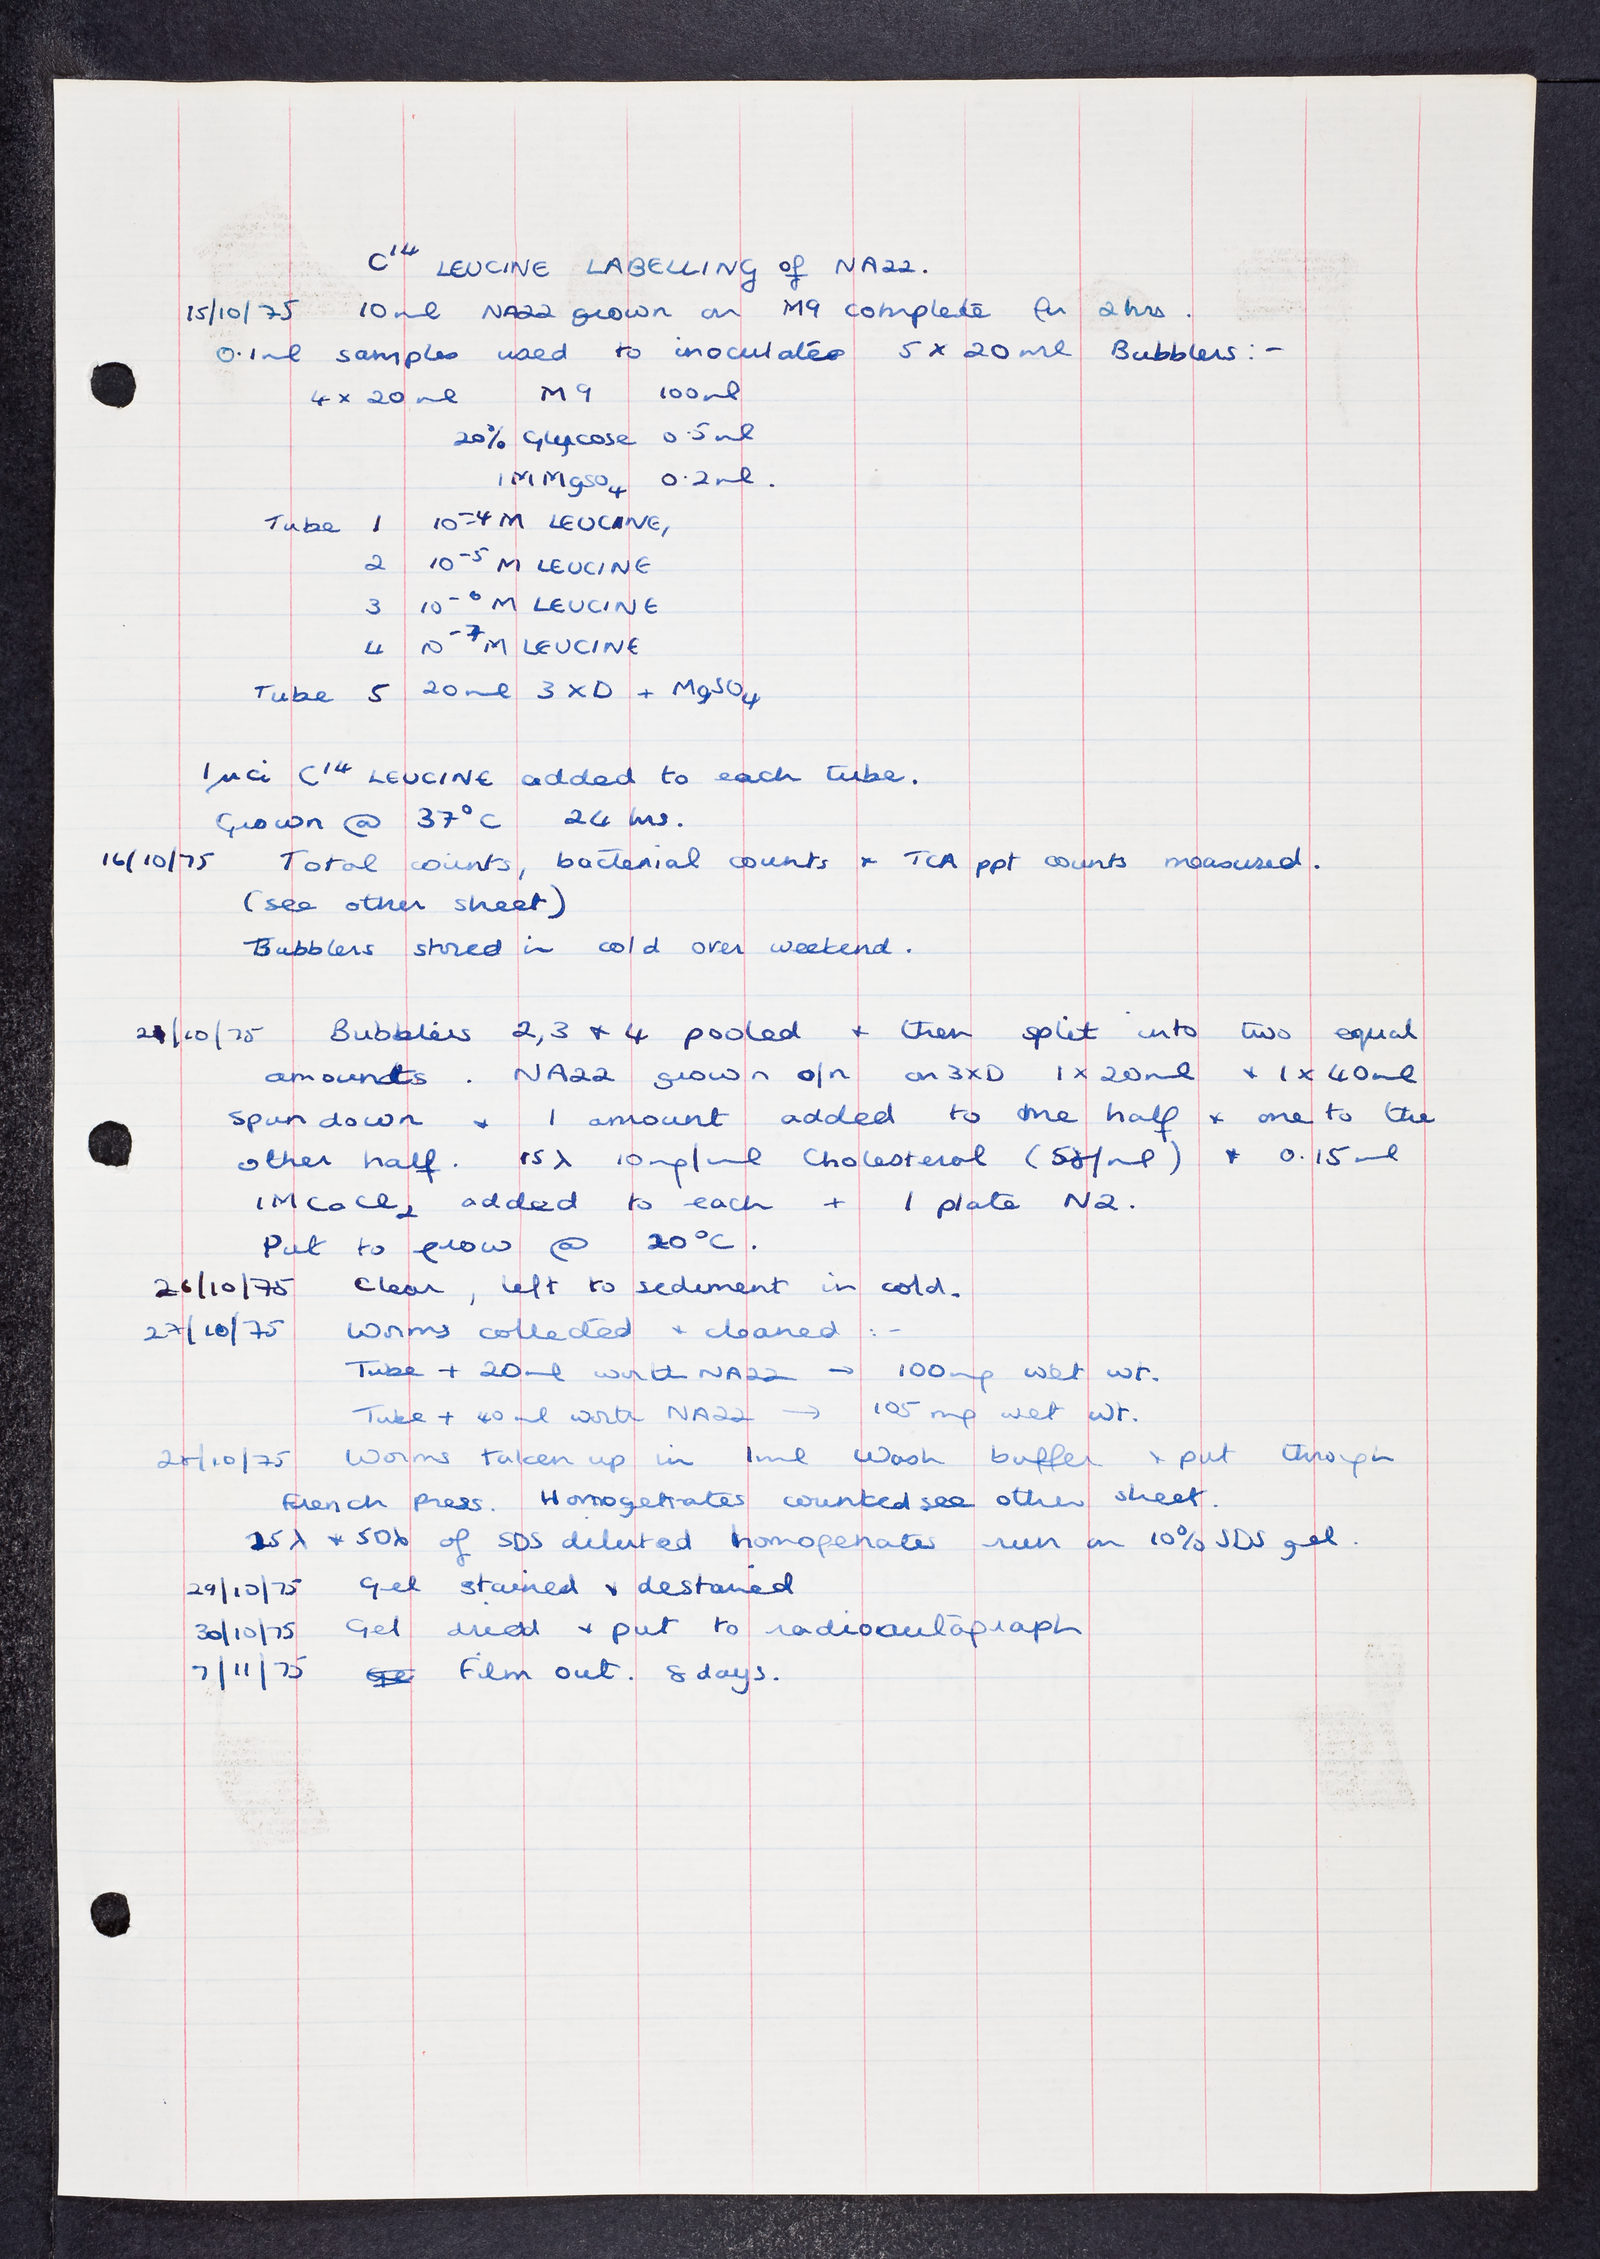 C¹⁴ LEUCINE LABELLING of NA22.
15/10/75 10ml NA22 grown on M9 complete for 2hrs.
0.1ml samples used to inoculate 5 x 20ml Bubblers:-
4 x 20ml M9 100ml
20% Glucose 0.5ml
1M MgSO₄ 0.2ml.
Tube 1 10⁻⁴M LEUCINE,
2 10⁻⁵M LEUCINE
3 10⁻⁶M LEUCINE
4 10⁻⁷M LEUCINE
Tube 5 20ml 3XD + MgSO₄
1μci C¹⁴ LEUCINE added to each tube.
Grown @ 37°C 24 hrs.
16/10/75 Total counts, bacterial counts + TCA ppt counts measured.
(see other sheet)
Bubblers stored in cold over weekend.
21/10/75 Bubblers 2,3 + 4 pooled + then split into two equal
amounts. NA22 grown o/n on 3XD 1 x 20ml + 1 x 40ml
spun down + 1 amount added to one half + one to the
other half. 15λ 10mg/ml Cholesterol (5γ/ml) + 0.15ml
1M CaCl₂ added to each + 1 plate N2.
Put to grow @ 20°C.
26/10/75 Clear, left to sediment in cold.
27/10/75 Worms collected + cleaned :-
Tube + 20ml worth NA22 → 100mg wet wt.
Tube + 40ml worth NA22 → 105mg wet wt.
28/10/75 Worms taken up in 1ml Wash buffer + put through
French Press. Homogenates counted see other sheet.
25λ + 50λ of SDS diluted homogenates run on 10% SDS gel.
29/10/75 Gel stained + destained
30/10/75 Gel dried + put to radioautograph
7/11/75 Film out. 8 days.